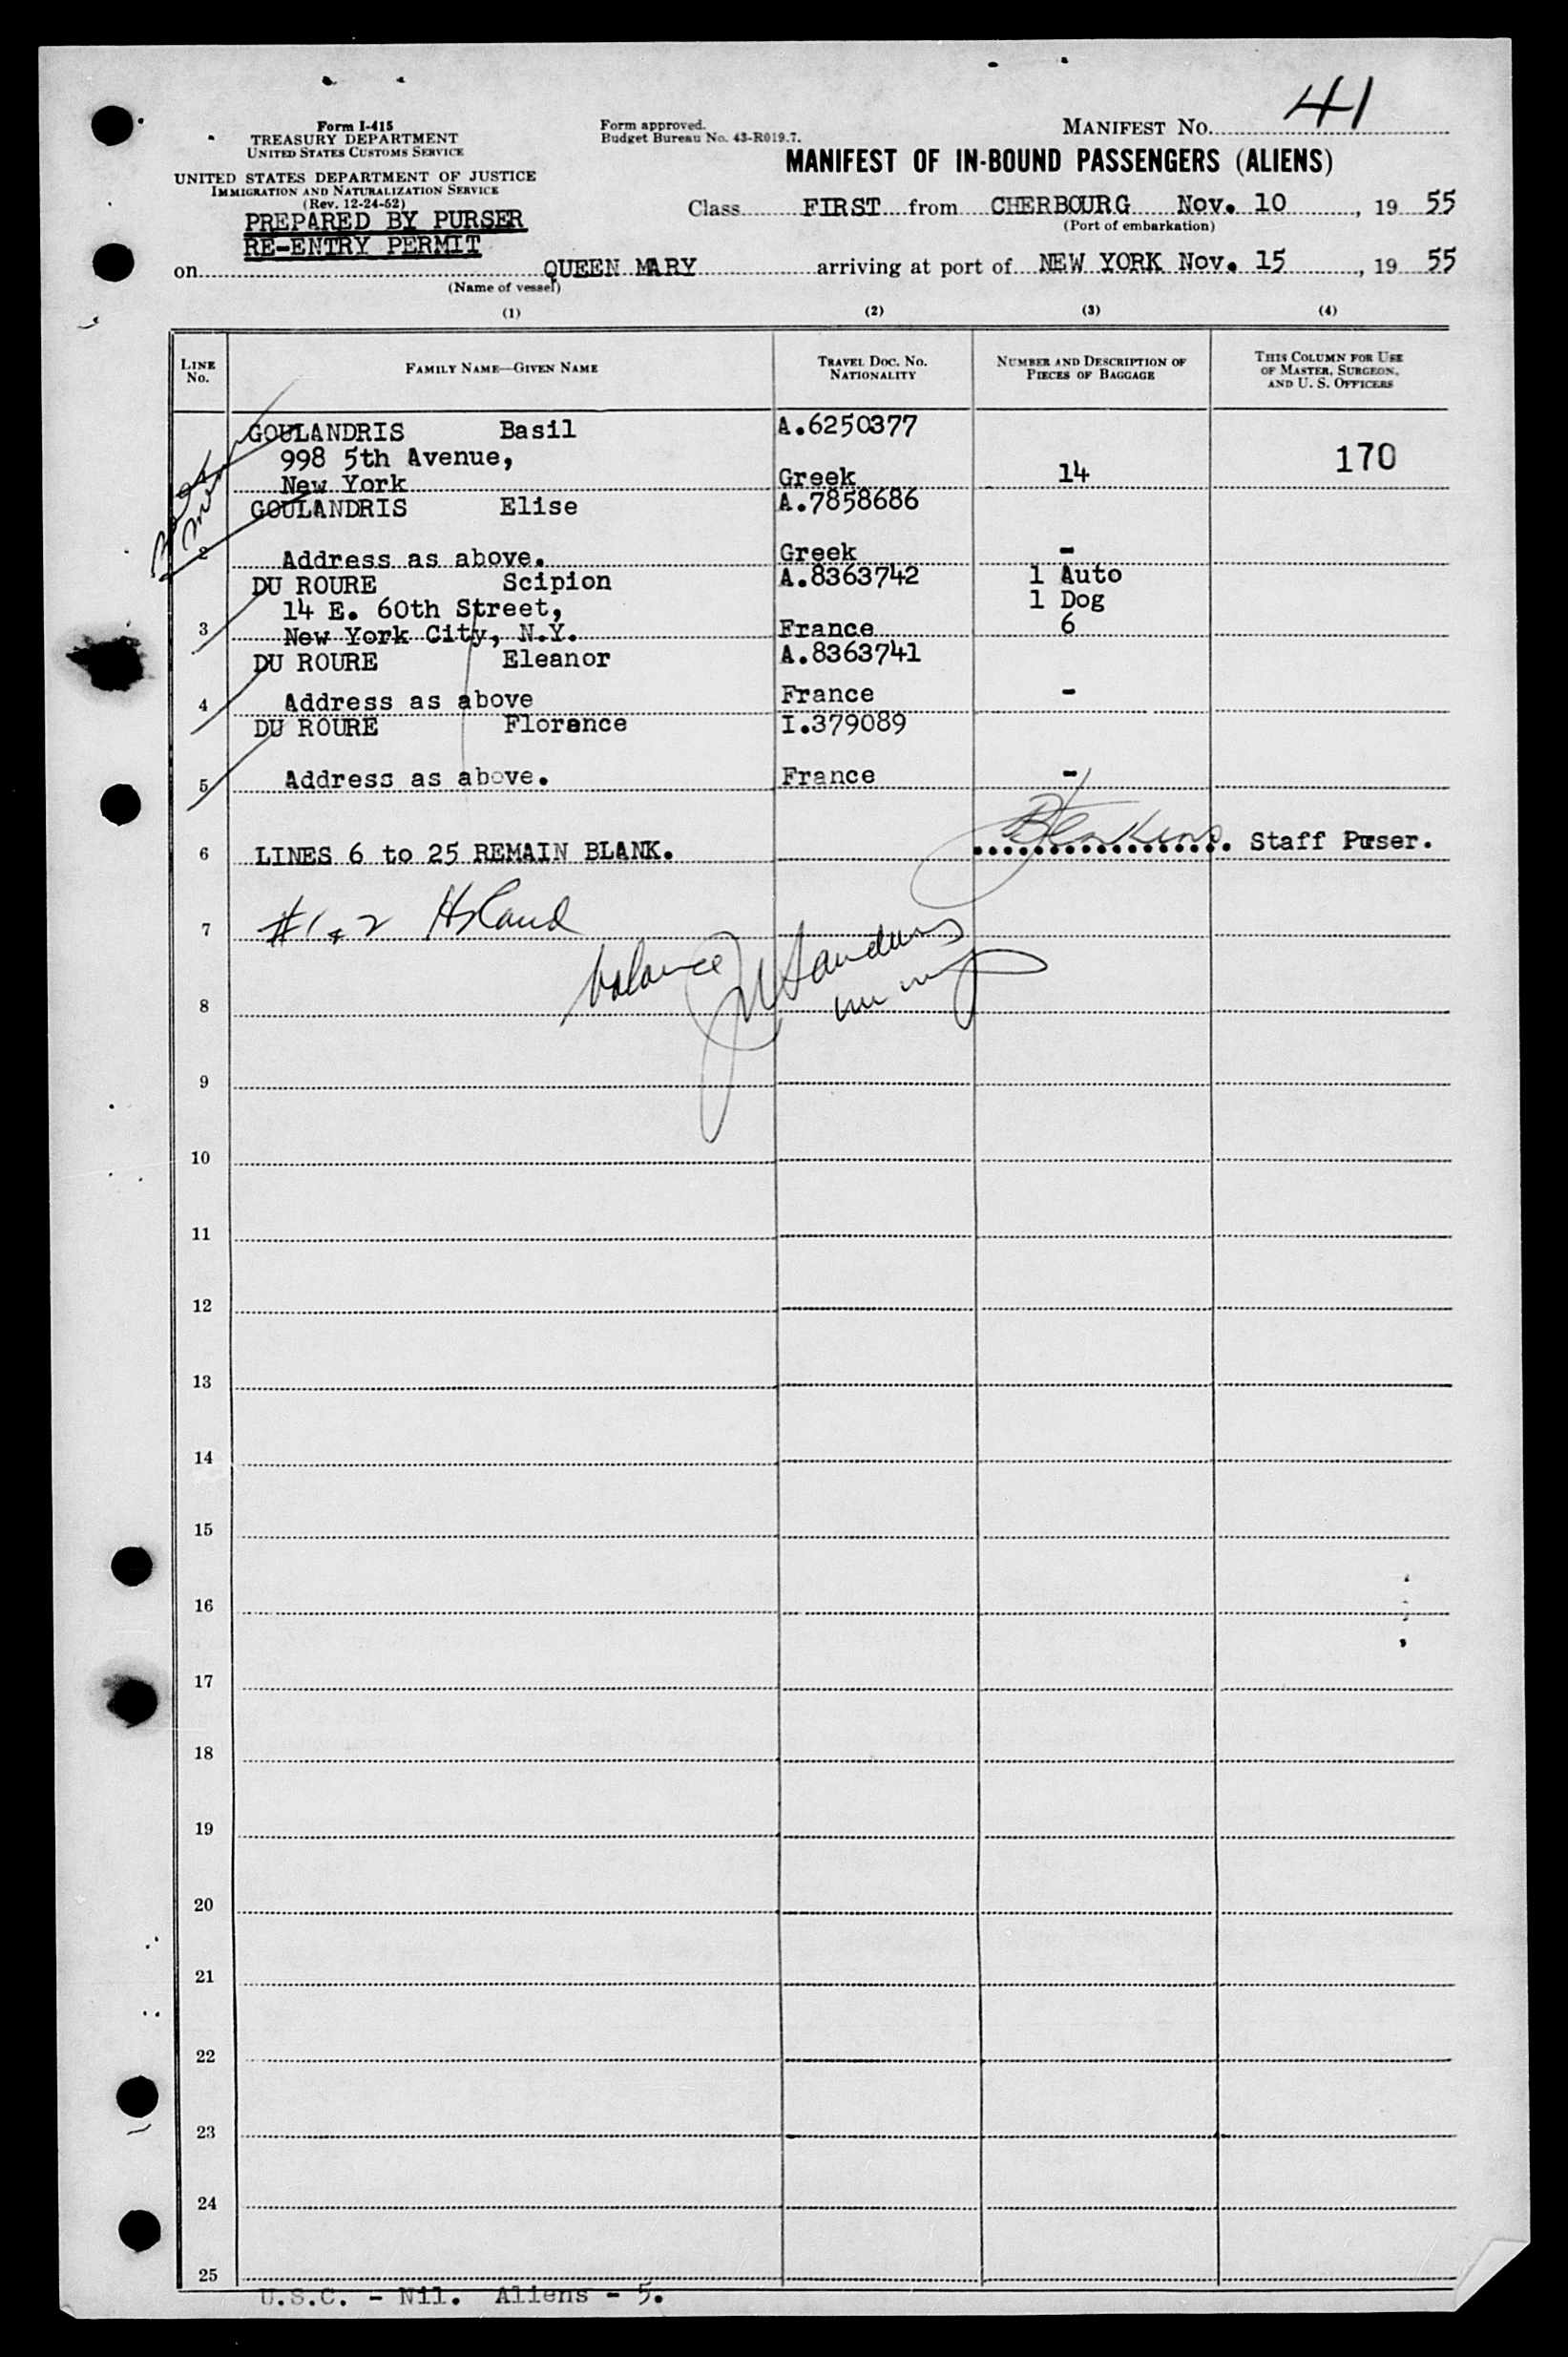 41
Form I-415
TREASURY DEPARTMENT
UNITED STATES CUSTOMS SERVICE
UNITED STATES DEPARTMENT OF JUSTICE
IMMIGRATION AND NATURALIZATION SERVICE
(Rev. 12-24-52)
PREPARED BY PURSER
RE-ENTRY PERMIT
Form approved.
Budget Bureau No. 43-R019.7.
MANIFEST NO.
MANIFEST OF IN-BOUND PASSENGERS (ALIENS)
Class FIRST from CHERBOURG Nov. 10, 19 55
(Port of embarkation)
on QUEEN MARY arriving at port of NEW YORK Nov. 15, 19 55
(Name of vessel)
(1) (2) (3) (4)
LINE No.
FAMILY NAME—GIVEN NAME
TRAVEL DOC. NO. NATIONALITY
NUMBER AND DESCRIPTION OF PIECES OF BAGGAGE
THIS COLUMN FOR USE OF MASTER, SURGEON, AND U. S. OFFICERS
GOULANDRIS Basil A.6250377
998 5th Avenue, 170
New York Greek 14
GOULANDRIS Elise A.7858686
2 Address as above. Greek -
DU ROURE Scipion A.8363742 1 Auto
14 E. 60th Street, 1 Dog
3 New York City, N.Y. France 6
DU ROURE Eleanor A.8363741
4 Address as above France -
DU ROURE Florence I.379089
5 Address as above. France -
6 LINES 6 to 25 REMAIN BLANK. Staff Purser.
7 #1 & 2 Hyland
balance Sanders
8
9
10
11
12
13
14
15
16
17
18
19
20
21
22
23
24
25
U.S.C. - Nil. Aliens - 5.